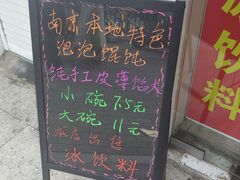 南京本地特色
泡泡馄饨
纯手工皮薄馅大
小碗 7.5元
大碗 11元
本店出售
冰饮料
饮
料